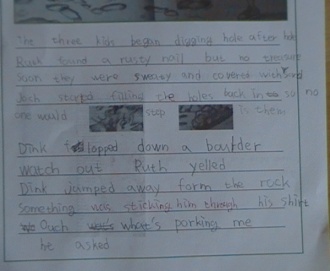 The three kids began digging hole after hole
Ruth found a rusty nail but no treasure
Soon they were sweaty and covered with sand
Josh started filling the holes back in so no
one would step in them
Dink flopped down a boulder
watch out Ruth yelled
Dink jamped away form the rock
Something was sticking him through his shirt
Ouch what's porking me
he asked